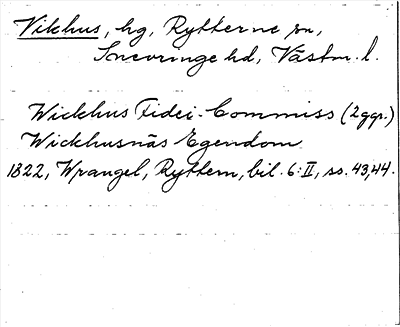 Vikhus, hg, Rytterne sn,
Snevringe hd, Västm. l.
Wickhus Fidei-Commiss (2 ggr.)
Wickhusnäs Egendom
1822, Wrangel, Ryttern, bil. 6:II, ss. 43,44.